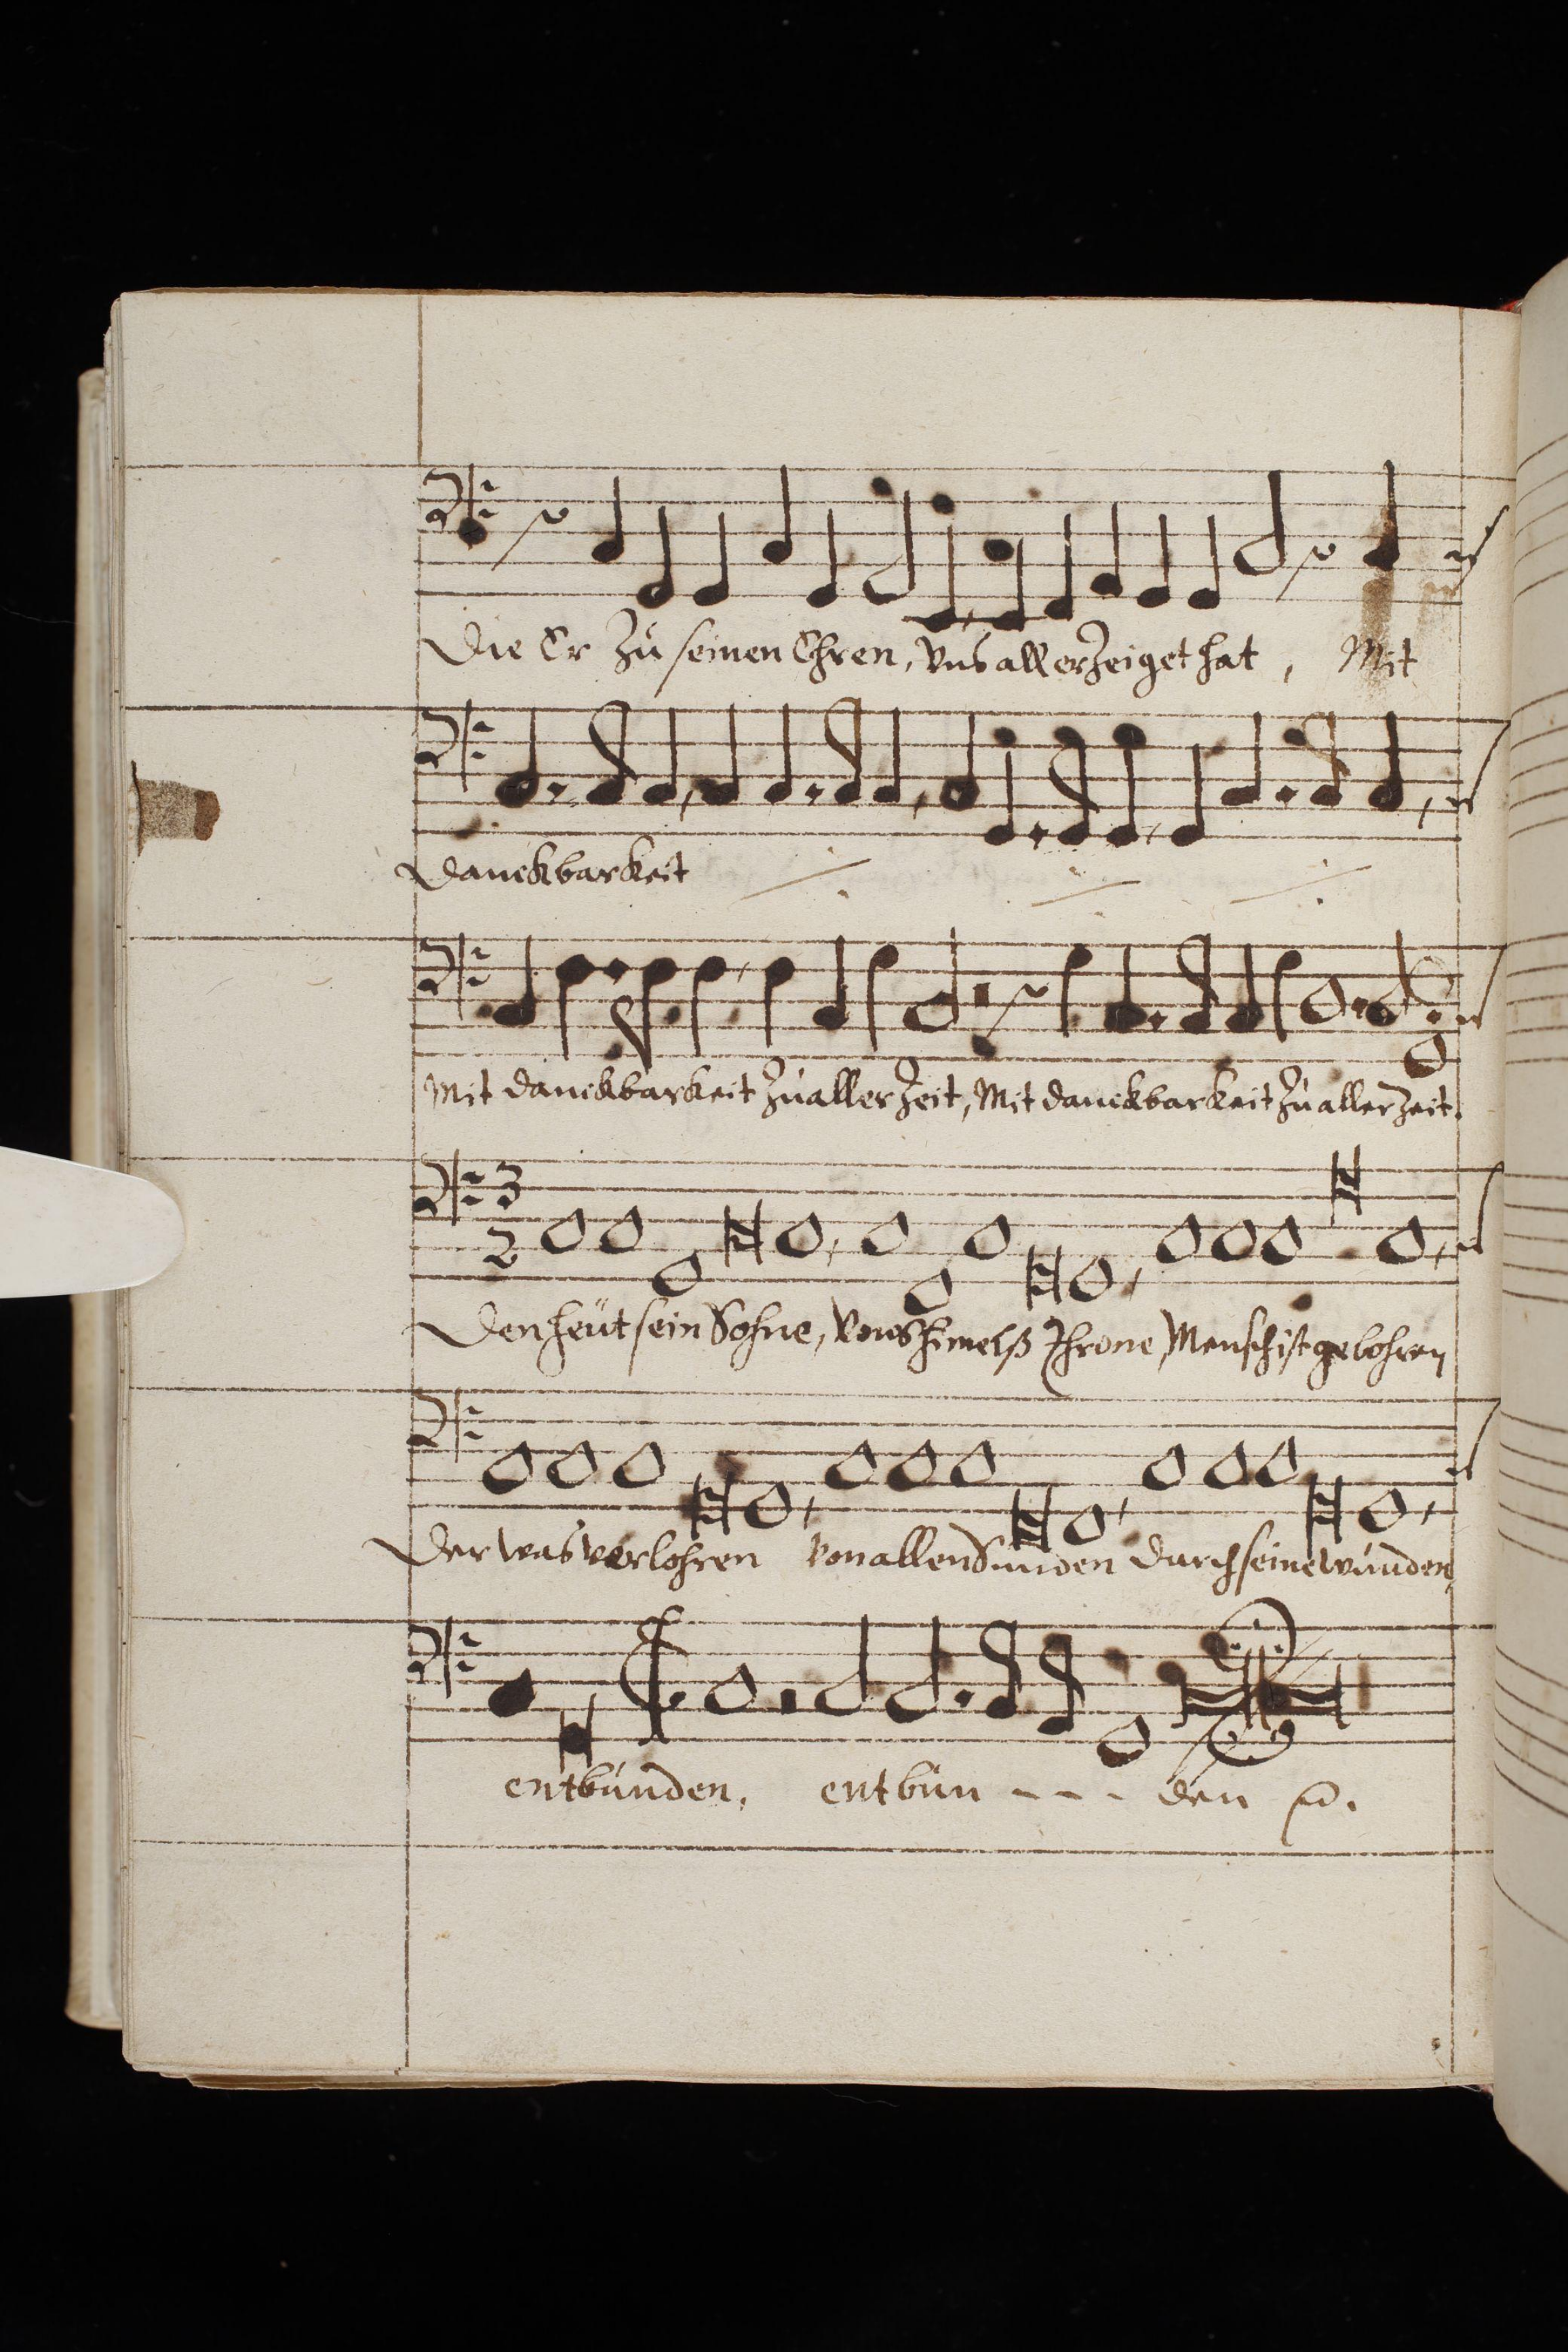 Die Er zu seinen Ehren, Vns all erzeiget hat, Mit
Danckbarkeit
Mit danckbarkeit zu aller Zeit, Mit danckbarkeit zu aller Zeit.
3
2
Den heüt sein Sohne, Vons himelß Throne, Mensch ist gebohren
Der was verlohren Von allen Sünden durch seine wunden
entbunden, entbun - - - den